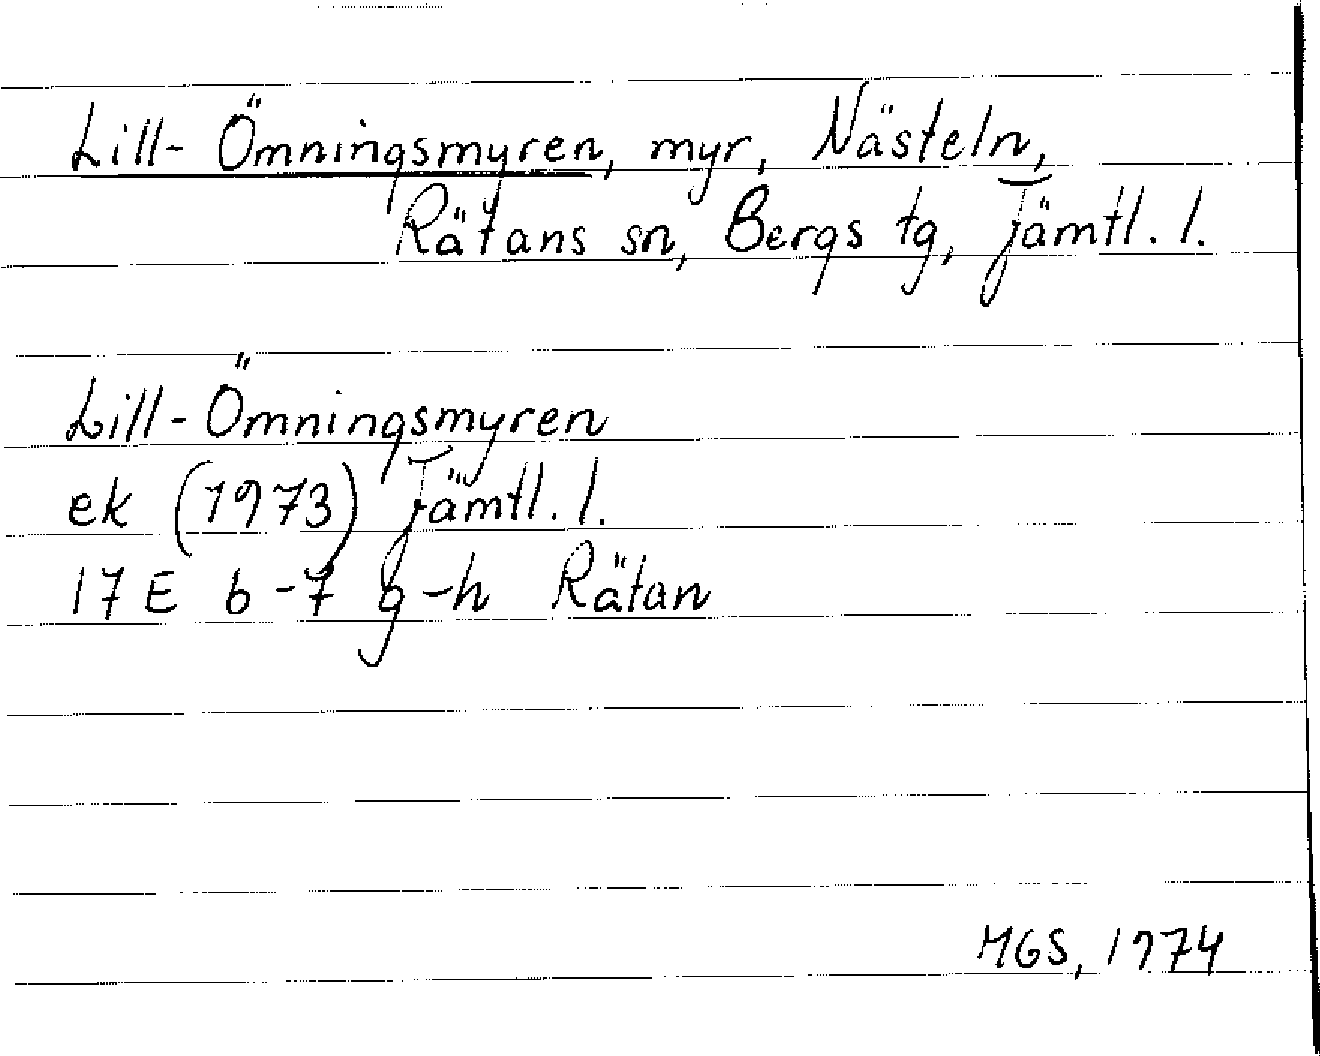 Lill-Ömningsmyren, myr, Nästeln,
Rätans sn, Bergs tg, Jämtl. l.
Lill-Ömningsmyren
ek (1973) Jämtl. l.
17 E 6-7 g-h Rätan
MGS, 1974